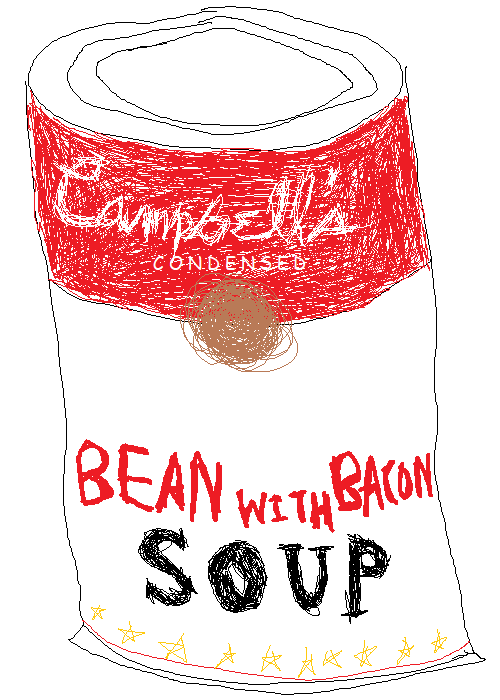 Campbell's
CONDENSED
BEAN WITH BACON
SOUP